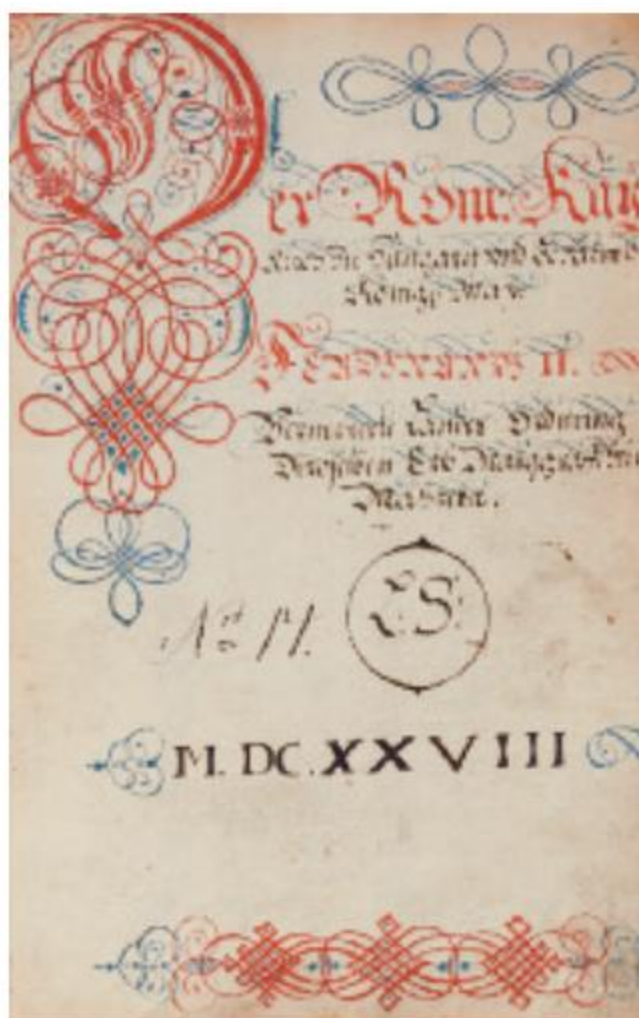 Der Röm: Kay
auch zu Hungarn vnd Böheimb
König: May:
FERDINANDI II.
Vernewerte Landes Ordnung
Deroselben Erb Marggrafthu
Mähren.
L.S.
M. DC. XXVIII